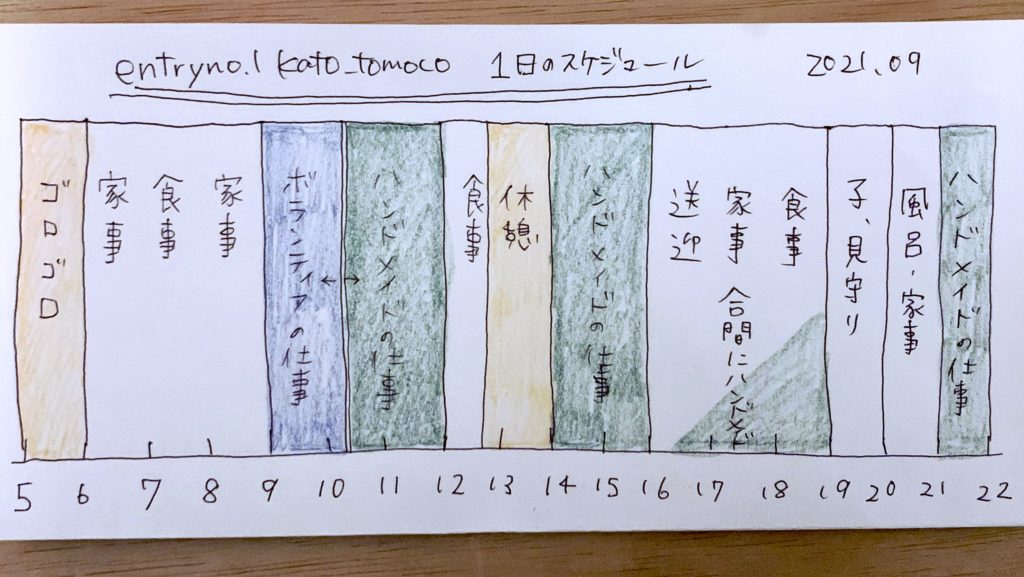 entryno.1 kato_tomoco 1日のスケジュール
2021.09
ゴロゴロ
家事
食事
家事
ボランティアの仕事
←→
ハンドメイドの仕事
食事
休憩
ハンドメイドの仕事
送迎
家事 合間にハンドメイド
食事
子、見守り
風呂・家事
ハンドメイドの仕事
5 6 7 8 9 10 11 12 13 14 15 16 17 18 19 20 21 22